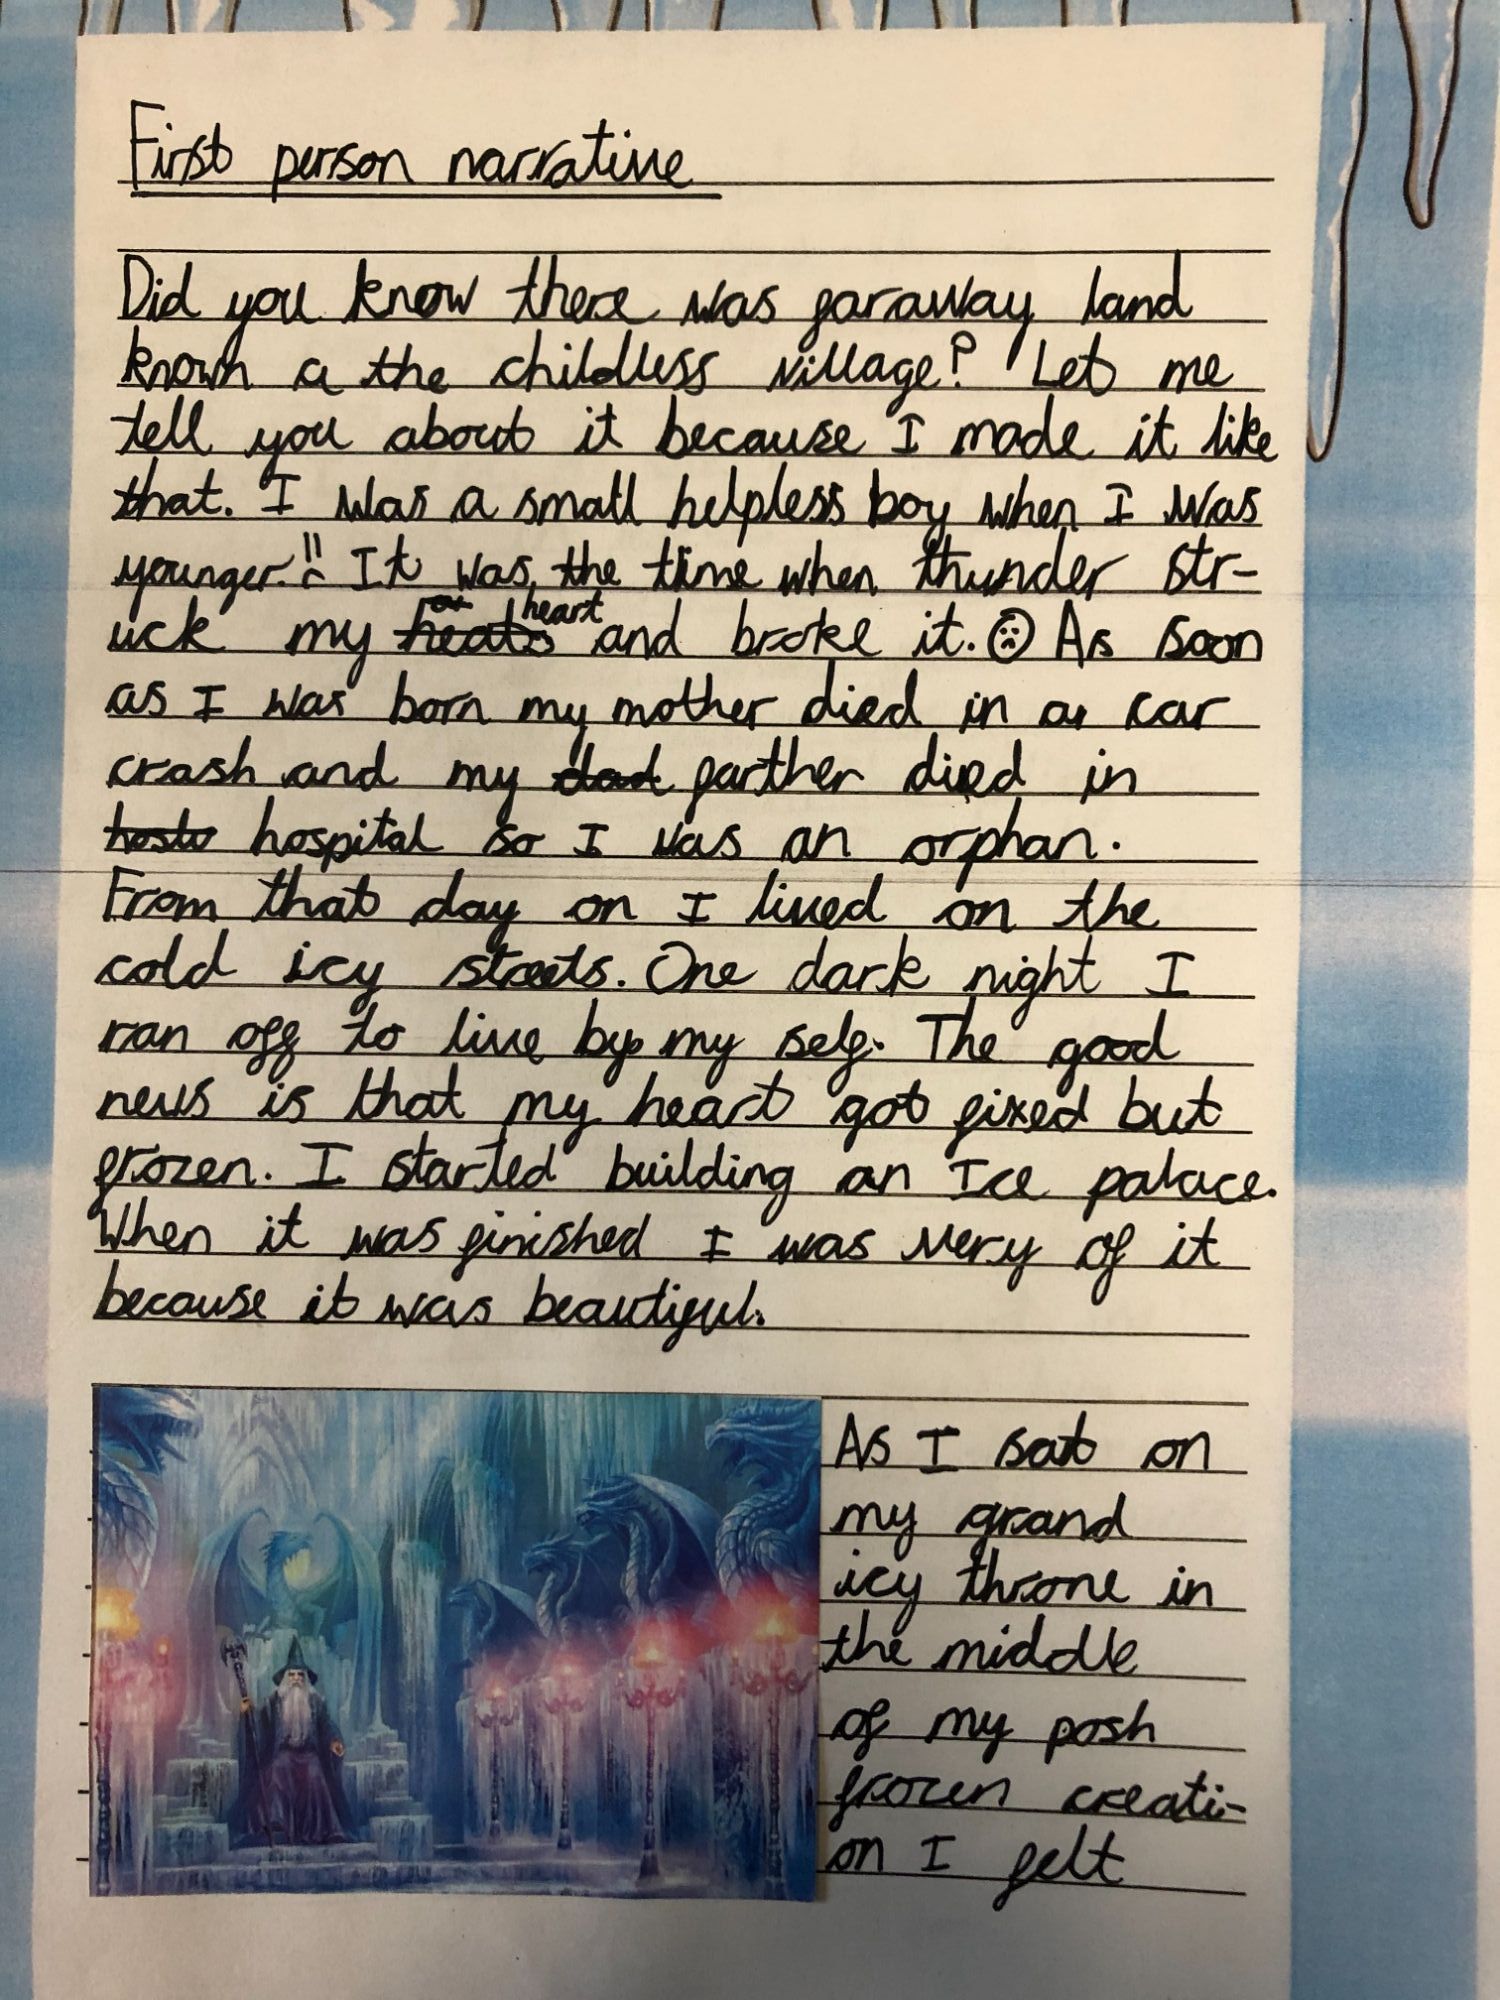 First person narrative
Did you know there was faraway land
known a the childless village? Let me
tell you about it because I made it like
that. I was a small helpless boy when I was
younger. It was the time when thunder str-
uck my heart and broke it. As soon
as I was born my mother died in a car
crash and my dad farther died in
hospital so I was an orphan.
From that day on I lived on the
cold icy streets. One dark night I
ran off to live by my self. The good
news is that my heart got fixed but
frozen. I started building an Ice palace.
When it was finished I was very of it
because it was beautiful.
As I sat on
my grand
icy throne in
the middle
of my posh
frozen creati-
on I felt